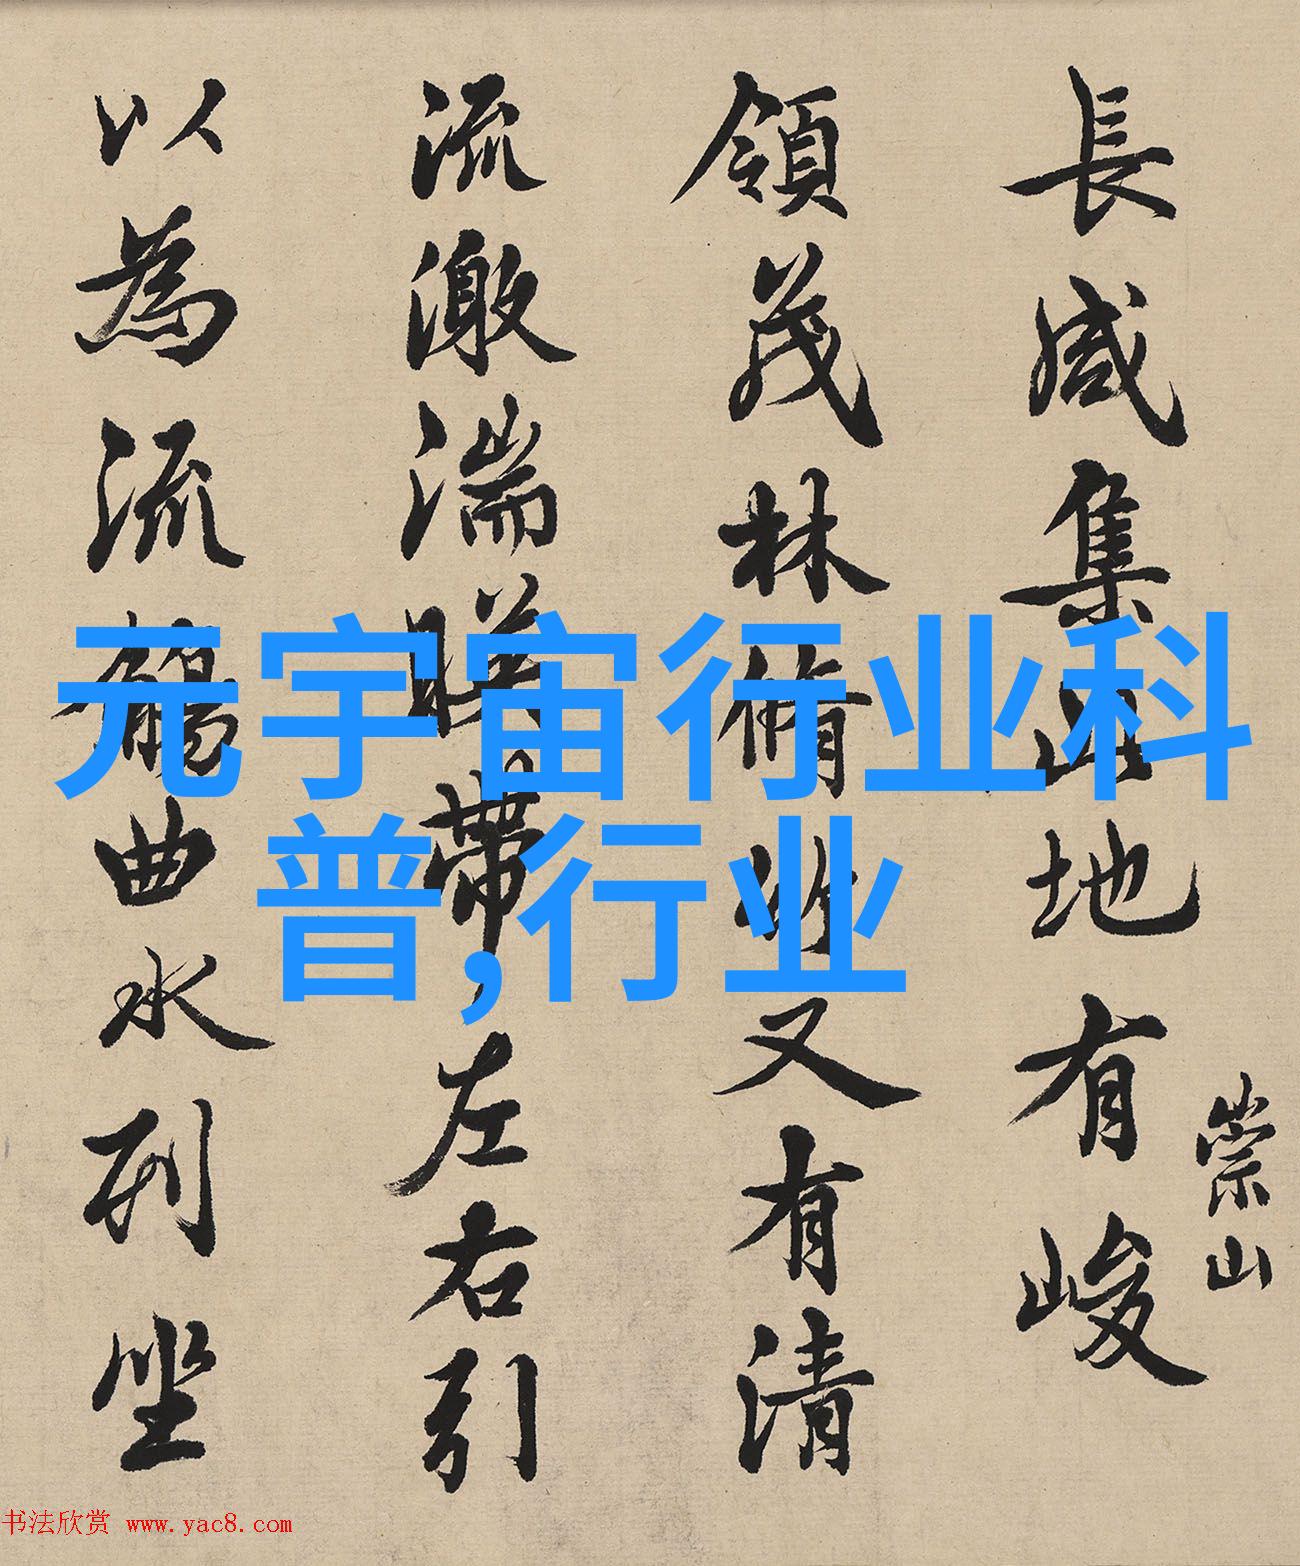 長咸集此地有峻
崇山
領茂林脩竹又有清
流激湍暎帶左右引
以為流觴曲水列坐
元宇宙行业科
普,行业
书法欣赏 www.yac8.com